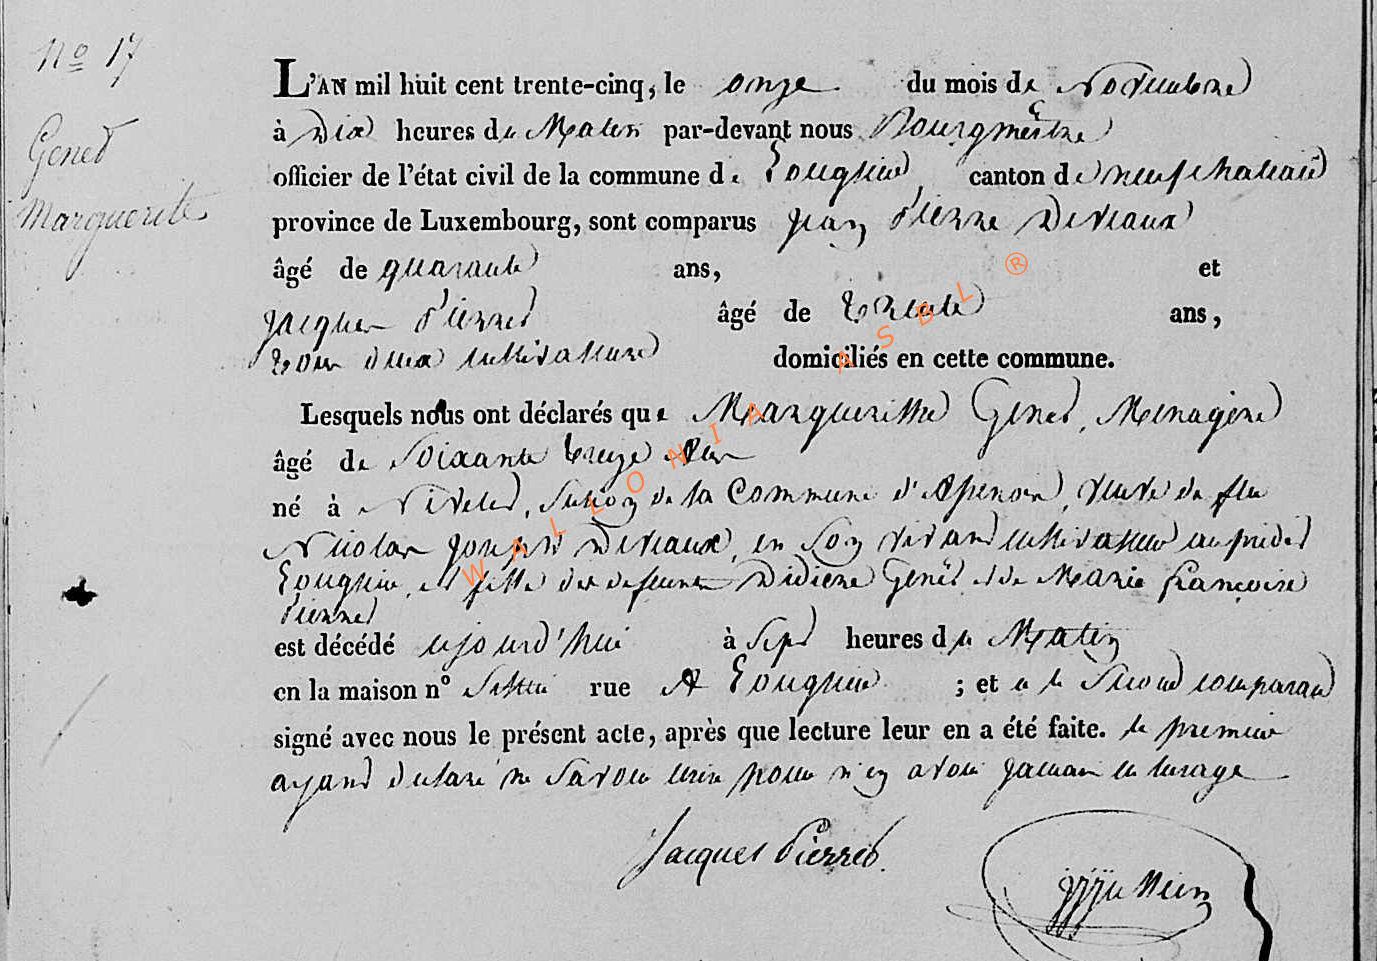 No 17
Genet
Marguerite
L'AN mil huit cent trente-cinq, le onze du mois de Novembre
à Dix heures du Matin par-devant nous Bourgmestre
officier de l'état civil de la commune de Longlier, canton de neufchateau
province de Luxembourg, sont comparus Jean Pierre Deveaux
âgé de quarante ans, et
Jacques Pierret âgé de trente ans,
tous deux cultivateurs domiciliés en cette commune.
Lesquels nous ont déclarés que Margueritte Genet, Menagère
âgé de Soixante treize ans
né à Nivelet, Section de la Commune d'Assenois, veuve de feu
Nicolas Joseph Deveaux, en son vivant cultivateur
Longlier, et fille des defunts Didière Genet et de Marie françoise
Pierret
est décédé aujourd'hui à Sept heures du Matin
en la maison no rue A Longlier ; et a le Second comparant
signé avec nous le présent acte, après que lecture leur en a été faite. le premier
ayant declaré ne Savoir écrire pour n'en avoir Jamais eu l'usage
Jacques Pierret
WALLONIA ASBL ®